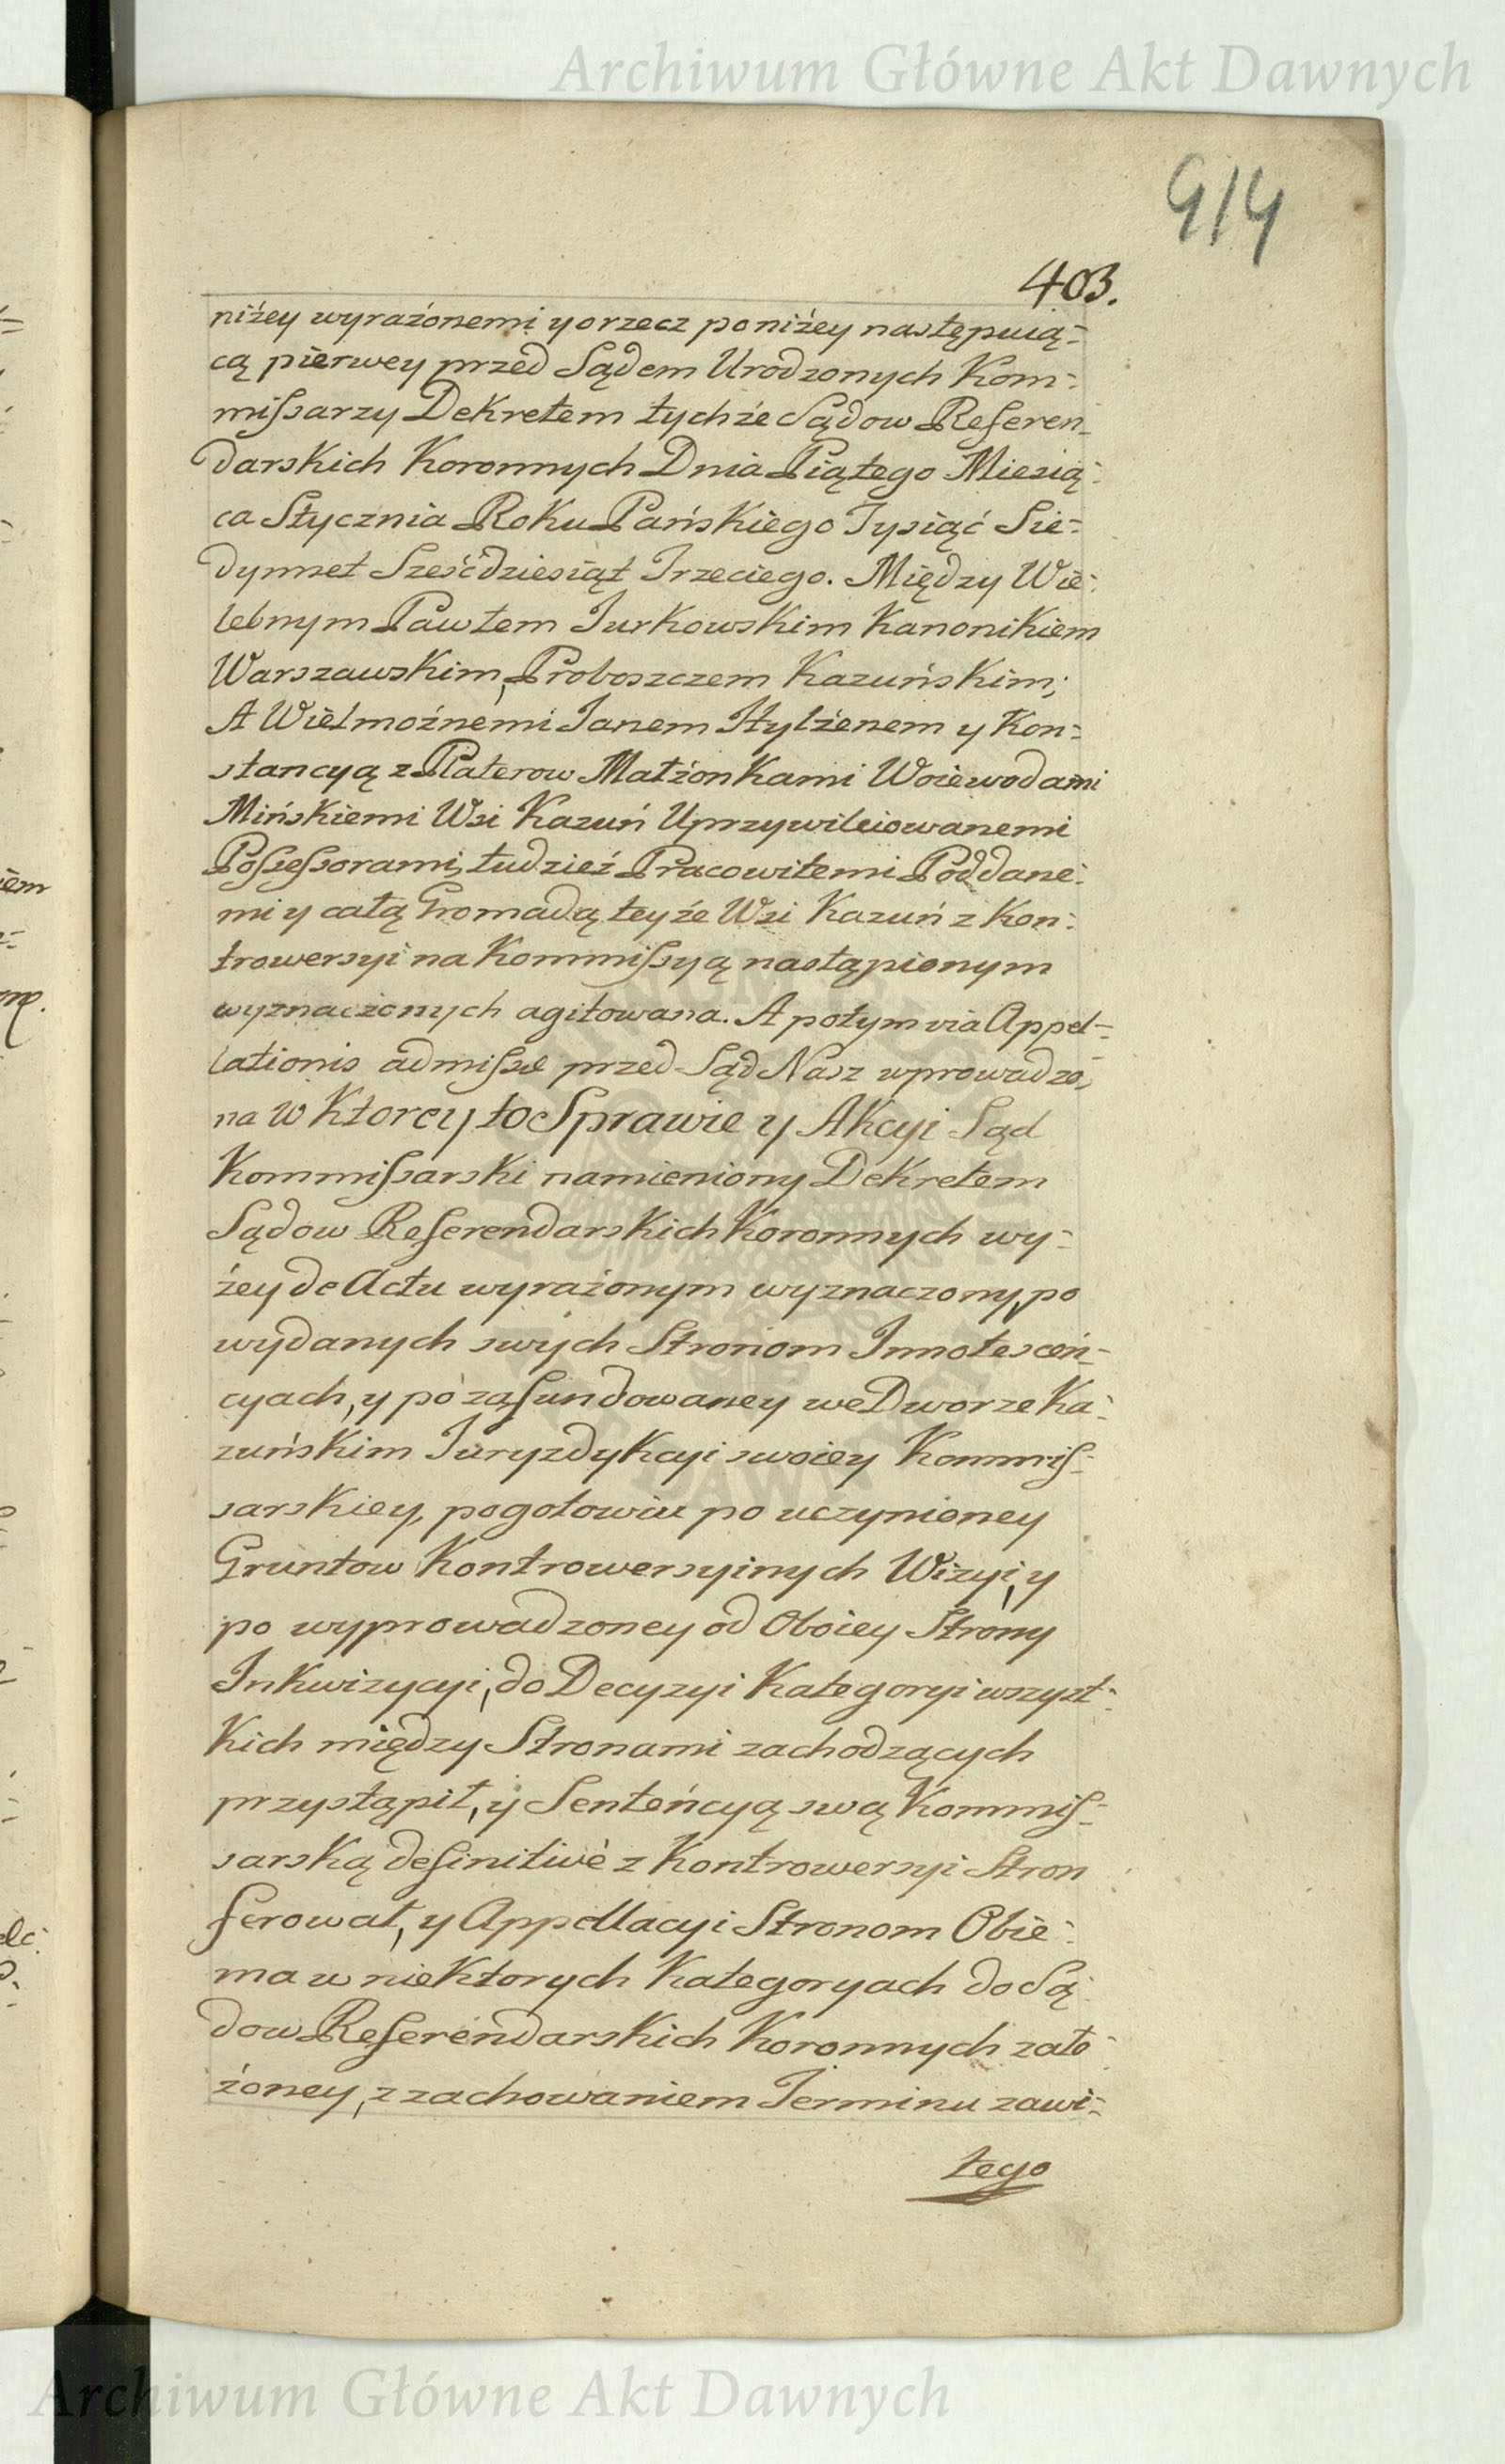 Archiwum Główne Akt Dawnych
914
403.
niżey wyrażonemi y o rzecz poniżey następuią=
cą pierwey przed Sądem Urodzonych Kom=
missarzy Dekretem tychże Sądow Referen=
darskich Koronnych Dnia Piątego Miesią=
ca Stycznia Roku Pańskiego Tysiąć Sie=
dymset Sześćdziesiąt Trzeciego. Między Wie=
lebnym Pawłem Jurkowskim Kanonikiem
Warszawskim, Proboszczem Kazuńskim;
A Wielmożnemi Janem Hylżenem y Kon=
stancyą z Platerow Małżonkami Woiewodami
Mińskiemi Wsi Kazuń Uprzywileiowanemi
Possessorami, tudzież Pracowitemi Poddane=
mi y całą Gromadą teyże Wsi Kazuń z Kon=
trowersyi na Kommissyą nastąpionym
wyznaczonych agitowana. A potym via Appel=
lationis admissæ przed Sąd Nasz wprowadzo=
na w Ktorey to Sprawie y Akcyi Sąd
Kommissarski namieniony Dekretem
Sądow Referendarskich Koronnych wy=
żey de Actu wyrażonym wyznaczony, po
wydanych swych Stronom Innotesceń=
cyach, y po zafundowaney we Dworze Ka=
zuńskim Juryzdykcyi swoiey Kommis=
sarskiey, pogotowiu po uczynioney
Gruntow Kontrowersyinych Wizyi, y
po wyprowadzoney od Oboiey Strony
Inkwizycyi, do Decyzyi Kategoryi wszyst=
kich między Stronami zachodzących
przystąpił, y Sentencyą swą Kommis=
sarską definitivè z Kontrowersyi Stron
ferował, y Appellacyi Stronom Obie=
ma w niektorych Kategoryach do Są=
dow Referendarskich Koronnych zało=
żoney, z zachowaniem Terminu zawi=
tego
Archiwum Główne Akt Dawnych